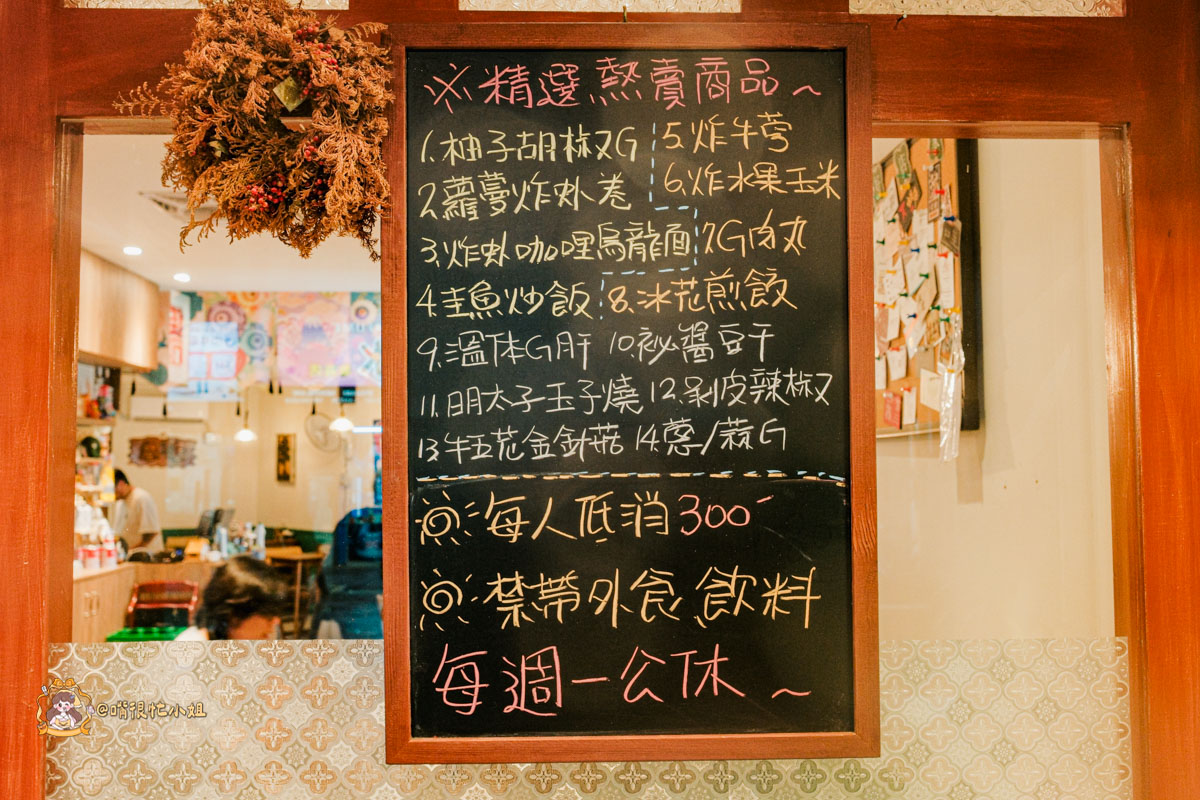 ※精選熱賣商品~
1.柚子胡椒双G
5.炸牛蒡
2.蘿蔓炸虾卷
6.炸水果玉米
3.炸虾咖哩烏龍面
7.G肉丸
4.鮭魚炒飯
8.冰花煎餃
9.溫体G肝 10.祕醬豆干
11.明太子玉子燒 12.剝皮辣椒双
13.牛五花金針菇 14.蔥/蒜G
每人低消300
禁帶外食、飲料
每週一公休~
@嗬很忙小姐